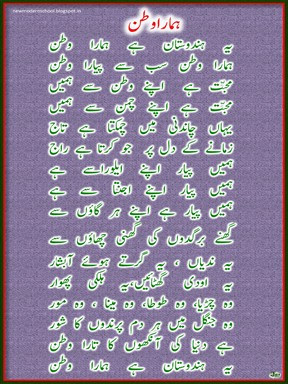 newmodernischool.blogspot.in
ہمارا وطن
یہ ہندوستان ہے ہمارا وطن
ہمارا وطن سب سے پیارا وطن
محبت ہے اپنے وطن سے ہمیں
محبت ہے اپنے چمن سے ہمیں
یہاں چاندنی میں چمکتا ہے تاج
زمانے کے دل پر جو کرتا ہے راج
ہمیں پیار اپنے ایلوراسے ہے
ہمیں پیار اپنے اجنتا سے ہے
ہمیں پیار ہے اپنے ہر گاؤں سے
گھنے برگدوں کی گھنی چھاؤں سے
یہ ندیاں ، یہ گرتے ہوئے آبشار
یہ اودی گھٹائیں،یہ ہلکی پھوار
وہ چڑیا، وہ طوطا، وہ مینا ، وہ مور
وہ جنگل میں ہر دم پرندوں کا شور
ہے دنیا کی آنکھوں کا تارا وطن
یہ ہندوستان ہے ہمارا وطن